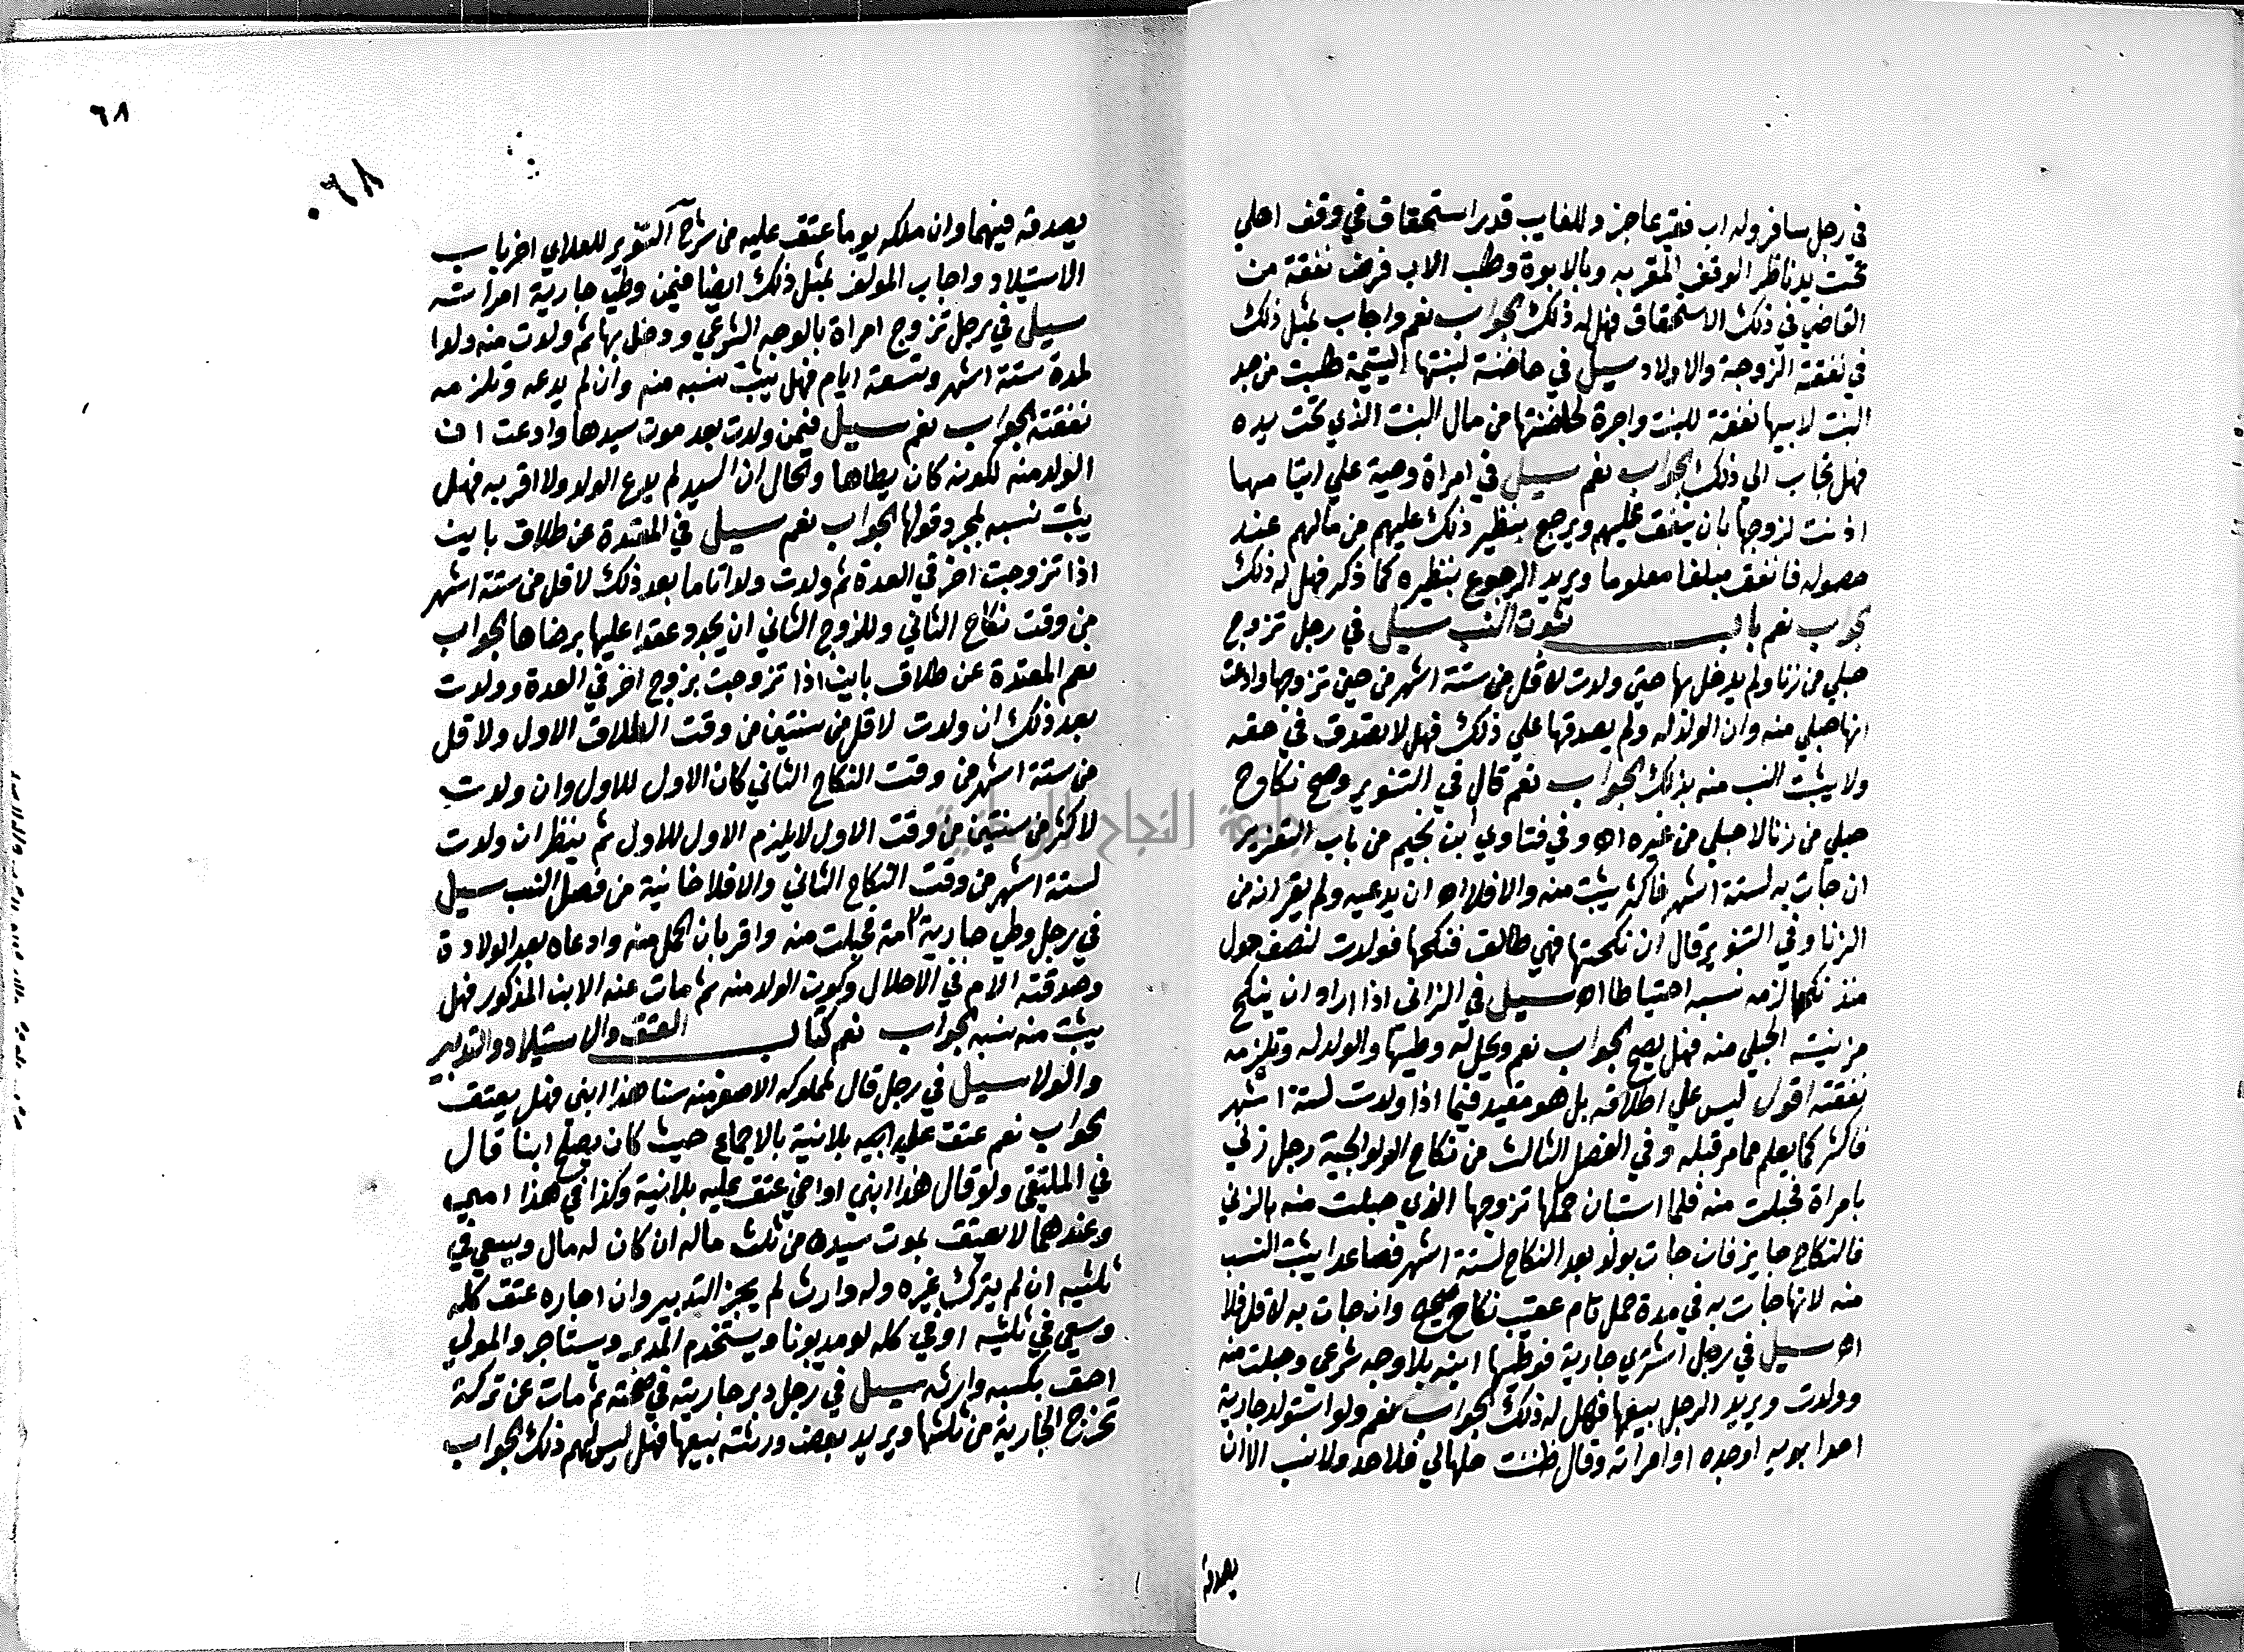 في رجل سافر وله اب فقير عاجز وللغايب قدر استحقاق في وقف اهلي
تحت يد ناظر الوقف المقر به وبالابوة وطلب الاب فرض نفقة من
القاضي في ذلك الاستحقاق فهل له ذلك الجواب نعم واجاب بمثل ذلك
في نفقة الزوجة والاولاد سيل في حاضنة لبنتها اليتيمة طلبت من جد
البنت لابيها نفقة للبنت واجرة لحاضنتها من مال البنت الذي تحت يده
فهل تجاب الي ذلك الجواب نعم سيل في امراة وصية علي ايتامها
اذنت لزوجها بان ينفق عليهم ويرجع بنظير ذلك عليهم من مالهم عند
حصوله فانفق مبلغا معلوما ويريد الرجوع بنظيره كما ذكر فهل له ذلك
الجواب نعم باب ثبوت النسب سيل في رجل تزوج
حبلي من زنا ولم يدخل بها حتي ولدت لاقل من ستة اشهر من حين تزوجها وادعت
انها حبلي منه وان الولد له ولم يصدقها علي ذلك فهل لا تصدق في حقه
ولا يثبت النسب منه بذلك الجواب نعم قال في التنوير وصح نكاح
حبلي من زنا لا حبلي من غيره اه وفي فتاوي ابن نجيم من باب التعزير
ان جات به لستة اشهر فاكثر يثبت منه والا فلا اه ان يدعيه ولم يقر انه من
الزنا وفي التنوير قال ان نكحتها فهي طالق فنكحها فولدت لنصف حول
منذ نكحها لزمه نسبه احتياطا اه سيل في الزاني اذا اراد ان ينكح
مزنيته الحبلي منه فهل يصح الجواب نعم ويحل له وطيها والولد له وتلزمه
نفقته اقول ليس علي اطلاقه بل هو مقيد فيما اذا ولدت لستة اشهر
فاكثر كما يعلم مما مر قبله وفي الفصل الثالث من نكاح الولوالجية رجل زني
بامراة فحبلت منه فلما استبان حملها تزوجها الذي حبلت منه بالزني
فالنكاح جايز فان جات بولد بعد النكاح لستة اشهر فصاعدا يثبت النسب
منه لانها جات به في مدة حمل تام عقيب نكاح صحيح وان جات به لاقل فلا
اه سيل في رجل اشتري جارية فوطيها ابنه بلا وجه شرعي وحبلت منه
وولدت ويريد الرجل بيعها فهل له ذلك الجواب نعم ولو استولد جارية
احد ابويه او جده او امراته وقال ظننت حلها لي فلا حد ولا نسب الا ان
يصدقه
٦٨
٦٨
يصدقه فيهما وان ملكه يوما عتق عليه من شرح التنوير للعلاي اخر باب
الاستيلاد واجاب المولف بمثل ذلك ايضا فيمن وطي جارية امراته
سيل في رجل تزوج امراة بالوجه الشرعي ودخل بها ثم ولدت منه ولدا
لمدة ستة اشهر وتسعة ايام فهل يثبت نسبه منه وان لم يدعه وتلزمه
نفقته الجواب نعم سيل فيمن ولدت بعد موت سيدها وادعت ان
الولد منه لكونه كان يطاها والحال ان السيد لم يدع الولد ولا اقر به فهل
يثبت نسبه بمجرد قولها الجواب نعم سيل في المعتدة عن طلاق باين
اذا تزوجت اخر في العدة ثم ولدت ولدا تاما بعد ذلك لاقل من ستة اشهر
من وقت نكاح الثاني وللزوج الثاني ان يجدد عقدا عليها برضاها الجواب
نعم المعتدة عن طلاق باين اذا تزوجت بزوج اخر في العدة وولدت
بعد ذلك ان ولدت لاقل من سنتين من وقت الطلاق الاول ولاقل
من ستة اشهر من وقت النكاح الثاني كان الاول للاول وان ولدت
لاكثر من سنتين من وقت الاول لا يلزم الاول للاول ثم ينظر ان ولدت
لستة اشهر من وقت النكاح الثاني والا فلا خانية من فصل النسب سيل
في رجل وطي جارية امه فحبلت منه واقر بان الحمل منه وادعاه بعد الولادة
وصدقته الام في الاحلال وكون الولد منه ثم مات عنه الابن المذكور فهل
يثبت منه نسبه الجواب نعم كتاب العتق والاستيلاد والتدبير
والولا سيل في رجل قال لمملوكه الاصغر منه سنا هذا ابني فهل يعتق
الجواب نعم عتق علي ابيه بلا نية بالاجماع حيث كان يصلح ابنا قال
في الملتقي ولو قال هذا ابني او اخي عتق عليه بلا نية وكذا في هذا امي
وعندهما لا يعتق بموت سيده من ثلث ماله ان كان له مال ويسعي في
ثلثيه ان لم يترك غيره وله وارث لم يجز التدبير وان اجازه عتق كله
وسعي في ثلثيه او في كله لو مديونا ويستخدم المدبر ويستاجر والمولي
احق بكسبه وارثه سيل في رجل دبر جاريته في صحته ثم مات عن تركة
تخرج الجارية من ثلثها ويريد بعض ورثته بيعها فهل ليس لهم ذلك الجواب
جامعة النجاح الوطنية